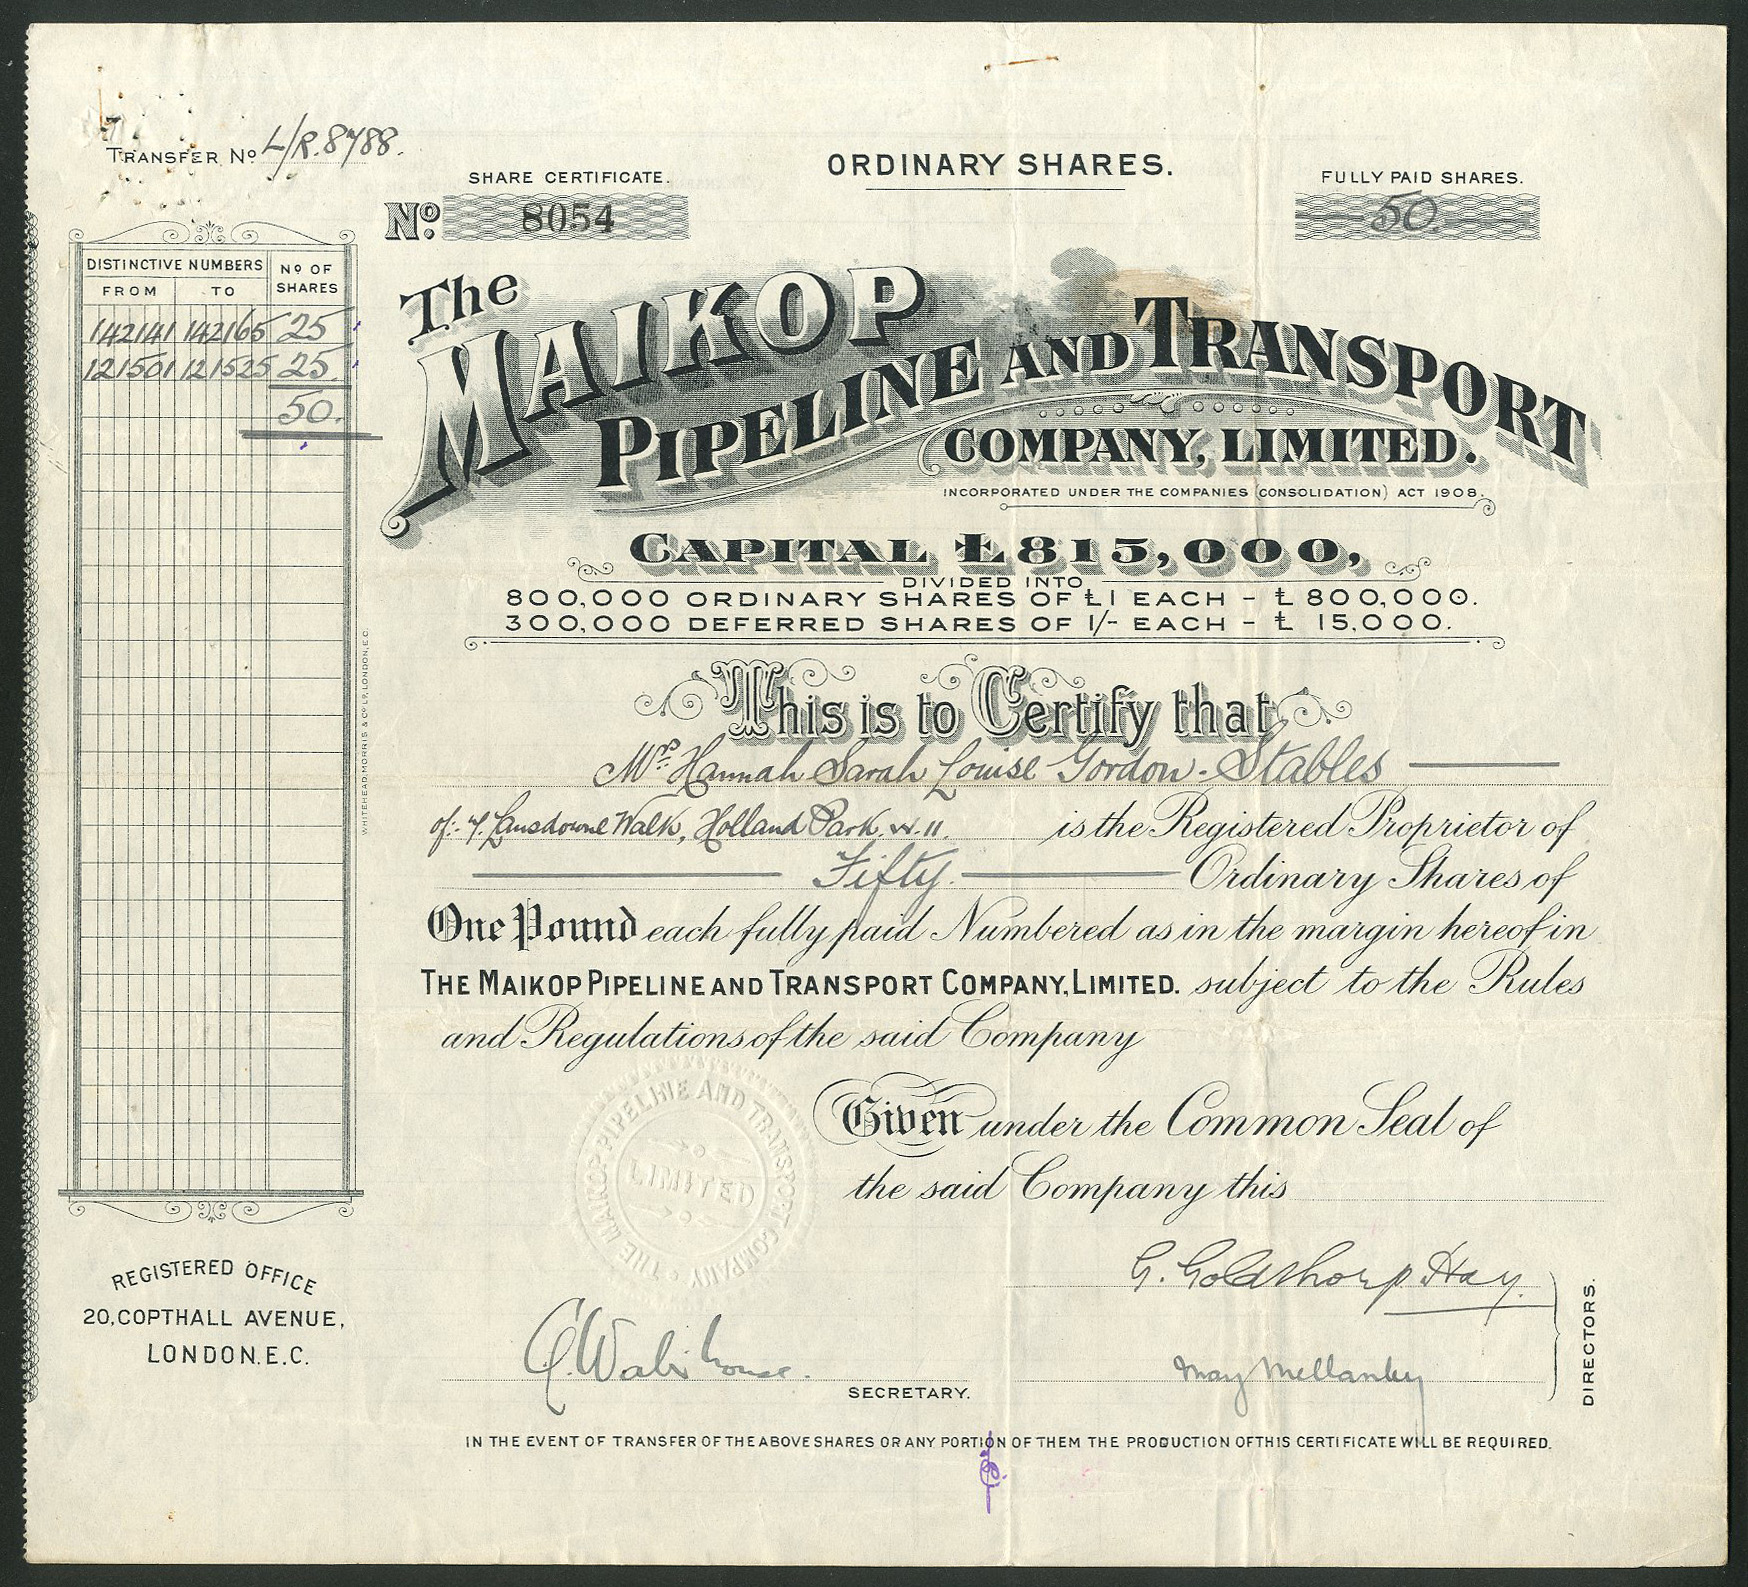 TRANSFER No L/R.8788.
SHARE CERTIFICATE.
No. 8054
ORDINARY SHARES.
FULLY PAID SHARES.
50.
DISTINCTIVE NUMBERS
No OF SHARES
FROM TO
142141 142165 25
121501 121525 25.
50.
The
MAIKOP
PIPELINE AND TRANSPORT
COMPANY, LIMITED.
INCORPORATED UNDER THE COMPANIES (CONSOLIDATION) ACT 1908.
CAPITAL £815,000,
DIVIDED INTO
800,000 ORDINARY SHARES OF £1 EACH - £800,000.
300,000 DEFERRED SHARES OF 1/- EACH - £ 15,000.
This is to Certify that
Mrs. Hannah Sarah Louise Gordon-Stables
of:- 7, Lansdowne Walk, Holland Park, W.11. is the Registered Proprietor of
Fifty. Ordinary Shares of
One Pound each fully paid Numbered as in the margin hereof in
THE MAIKOP PIPELINE AND TRANSPORT COMPANY, LIMITED. subject to the Rules
and Regulations of the said Company
Given under the Common Seal of
the said Company this
THE MAIKOP PIPELINE AND TRANSPORT COMPANY
LIMITED
WHITEHEAD, MORRIS & Co. LD. LONDON, E.C.
REGISTERED OFFICE
20, COPTHALL AVENUE,
LONDON. E.C.
G. Goldthorp Hay.
May Mellanby
DIRECTORS.
SECRETARY.
IN THE EVENT OF TRANSFER OF THE ABOVE SHARES OR ANY PORTION OF THEM THE PRODUCTION OF THIS CERTIFICATE WILL BE REQUIRED.